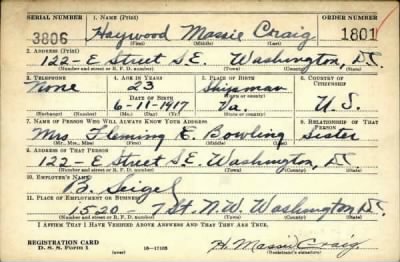 SERIAL NUMBER 1. NAME (Print) ORDER NUMBER
3806 Haywood Massie Craig 1801
(First) (Middle) (Last)
2. ADDRESS (Print)
122-E Street S.E. Washington, D.C.
(Number and street or R. F. D. number) (Town) (County) (State)
3. TELEPHONE 4. AGE IN YEARS 5. PLACE OF BIRTH 6. COUNTRY OF CITIZENSHIP
None 23 Shipman
DATE OF BIRTH (Town or county)
6-11-1917 Va. U.S.
(Exchange) (Number) (Mo.) (Day) (Yr.) (State or country)
7. NAME OF PERSON WHO WILL ALWAYS KNOW YOUR ADDRESS 8. RELATIONSHIP OF THAT PERSON
Mrs Fleming E. Bowling Sister
(Mr., Mrs., Miss) (First) (Middle) (Last)
9. ADDRESS OF THAT PERSON
122-E Street S.E. Washington, D.C.
(Number and street or R. F. D. number) (Town) (County) (State)
10. EMPLOYER'S NAME
B. Seigel
11. PLACE OF EMPLOYMENT OR BUSINESS
1520 - 7 St. N.W. Washington D.C.
(Number and street or R. F. D. number) (Town) (County) (State)
I AFFIRM THAT I HAVE VERIFIED ABOVE ANSWERS AND THAT THEY ARE TRUE.
REGISTRATION CARD H. Massie Craig
D. S. S. Form 1 (over) 16-17105 (Registrant's signature)